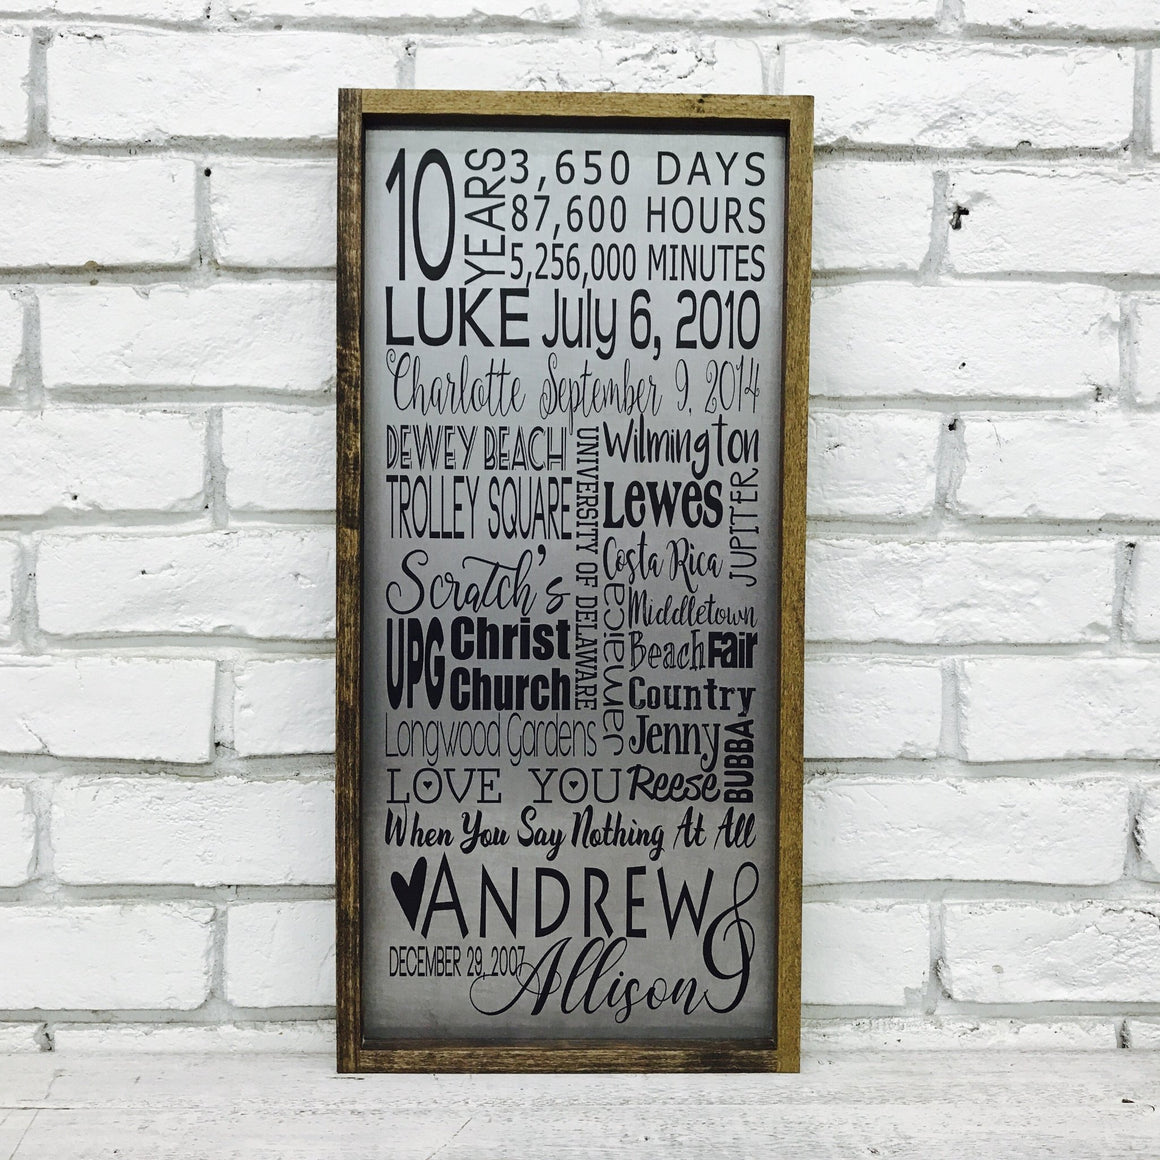 10 YEARS
3,650 DAYS
87,600 HOURS
5,256,000 MINUTES
LUKE July 6, 2010
Charlotte September 9, 2014
DEWEY BEACH
TROLLEY SQUARE
Scratch's
UPG
Christ
Church
UNIVERSITY OF DELAWARE
Wilmington
Lewes
JUPITER
Costa Rica
Jenmeicac
Middletown
Beach Fair
Country
Jenny
BUBBA
Longwood Gardens
LOVE YOU Reese
When You Say Nothing At All
ANDREW &
DECEMBER 29, 2007
Allison